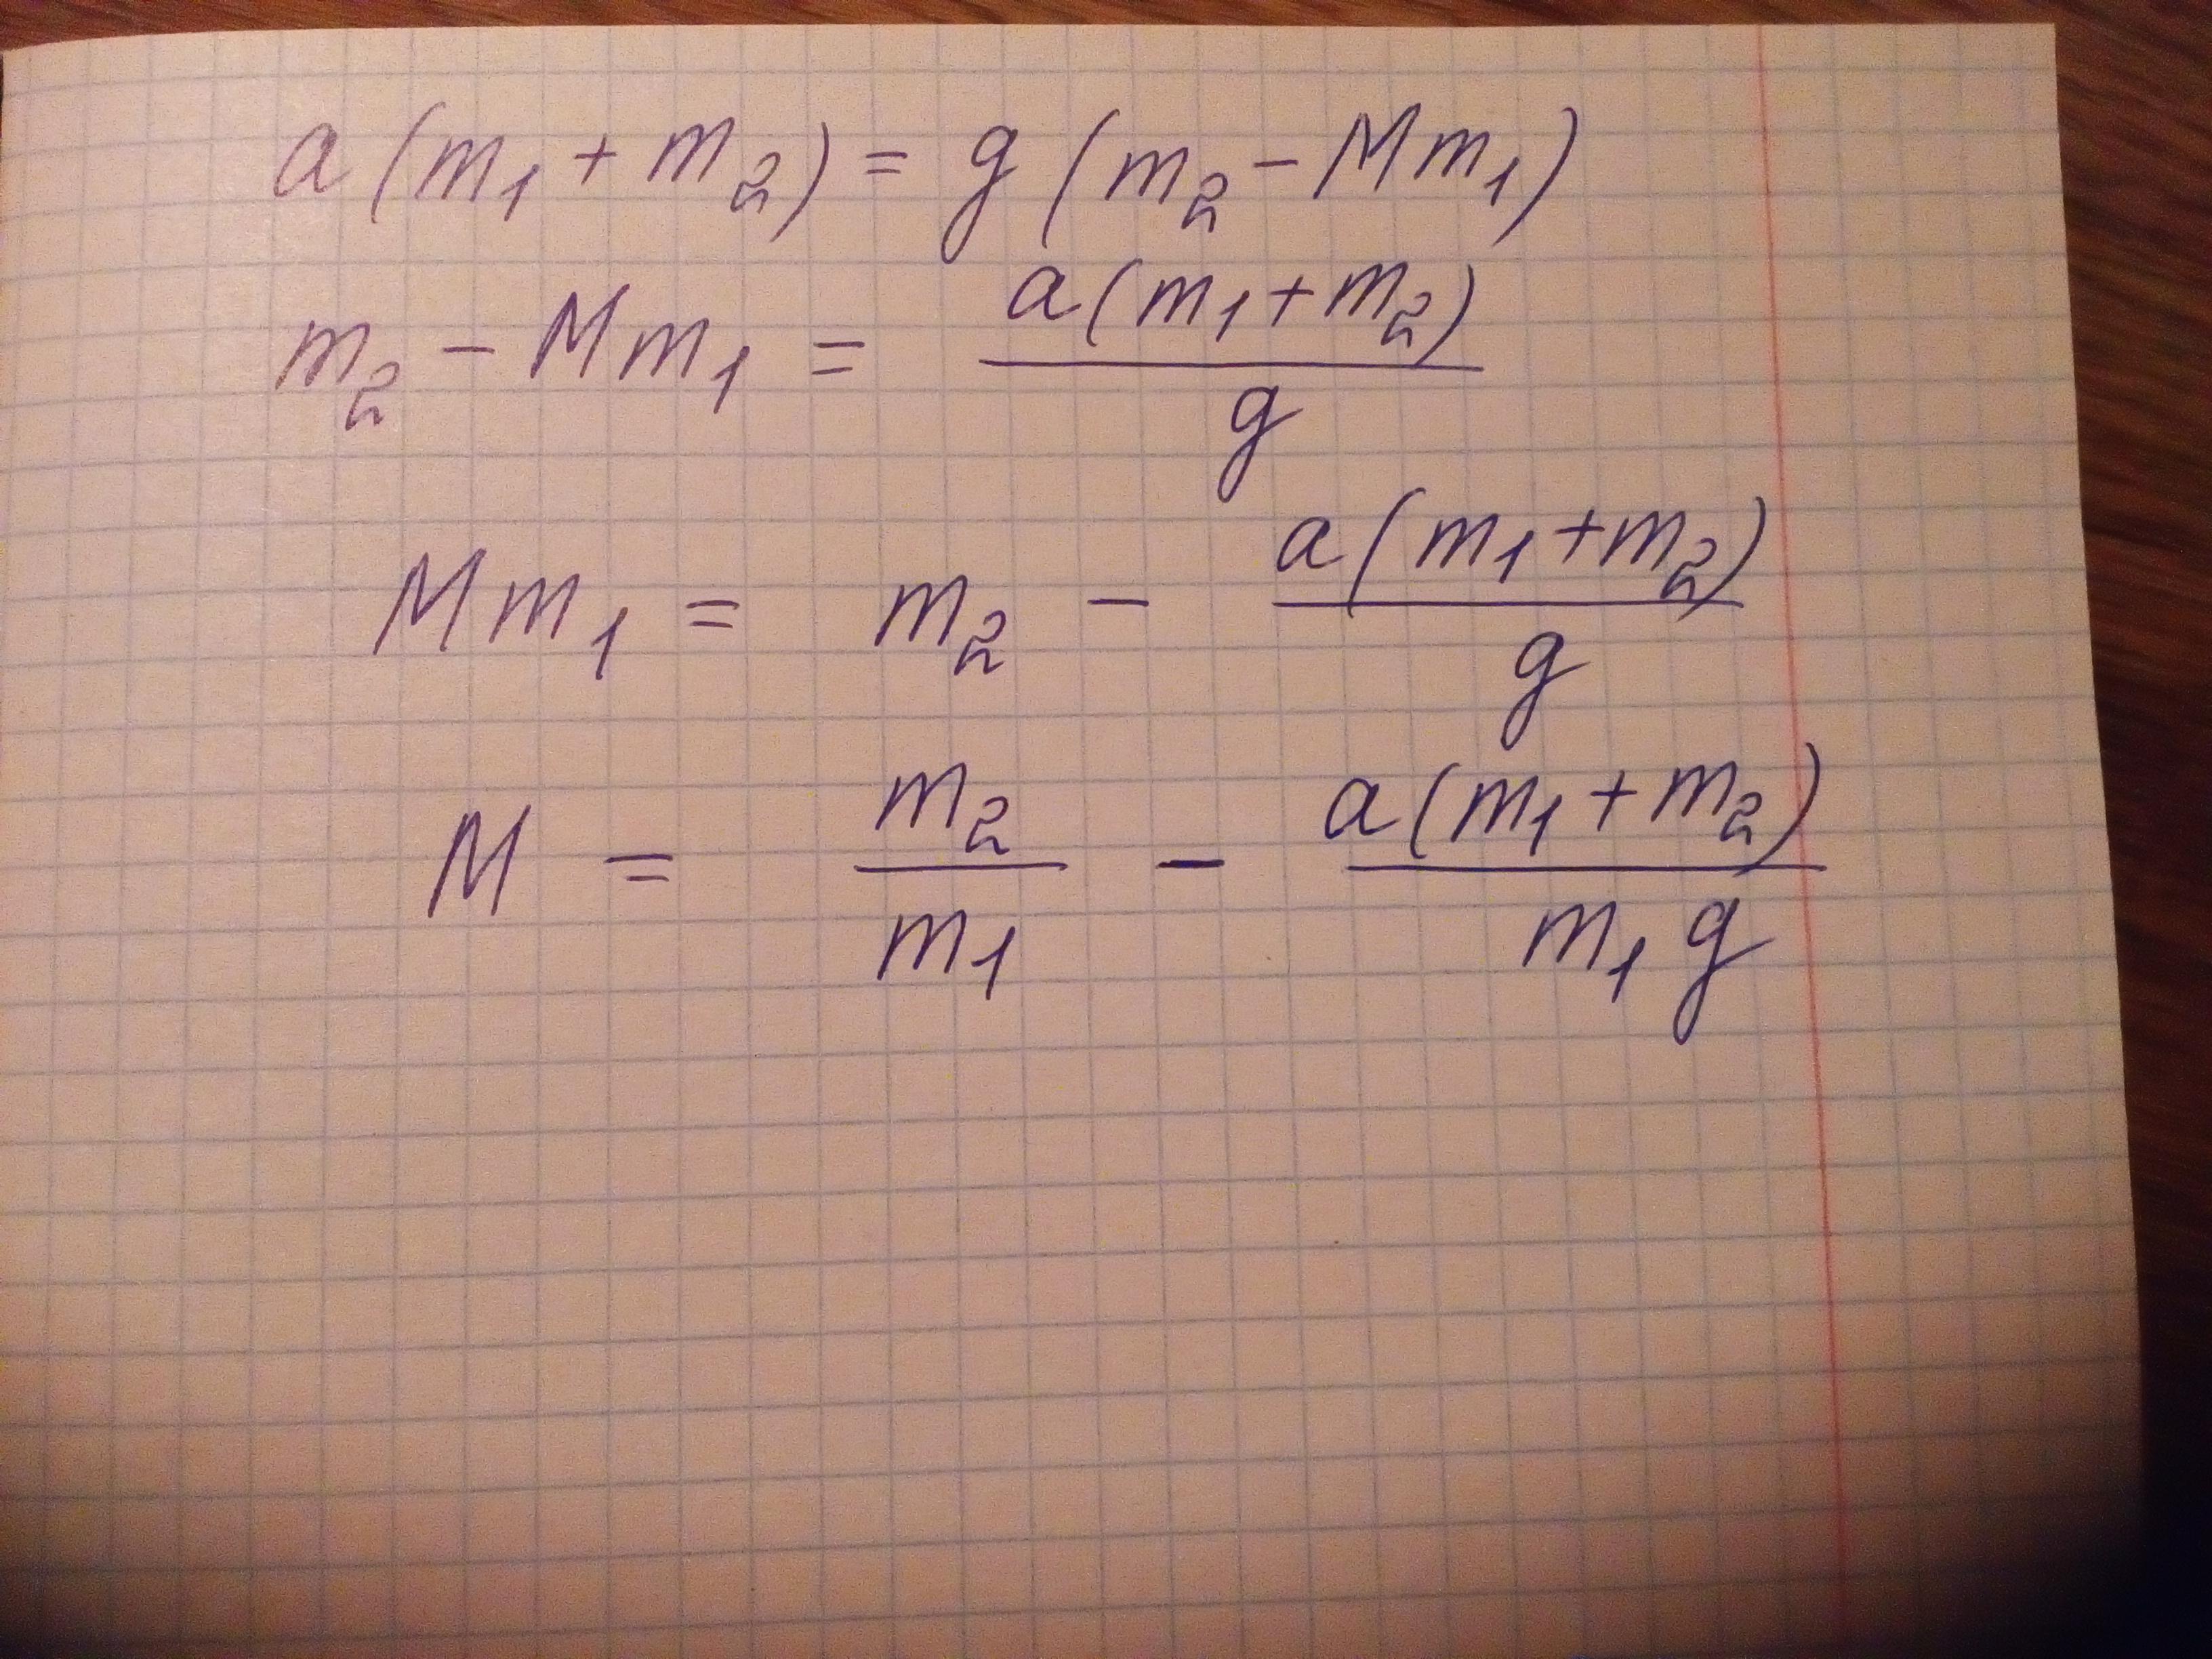 a(m₁+m₂)=g(m₂-Mm₁)
m₂-Mm₁= a(m₁+m₂)/g
Mm₁= m₂ - a(m₁+m₂)/g
M = m₂/m₁ - a(m₁+m₂)/m₁g